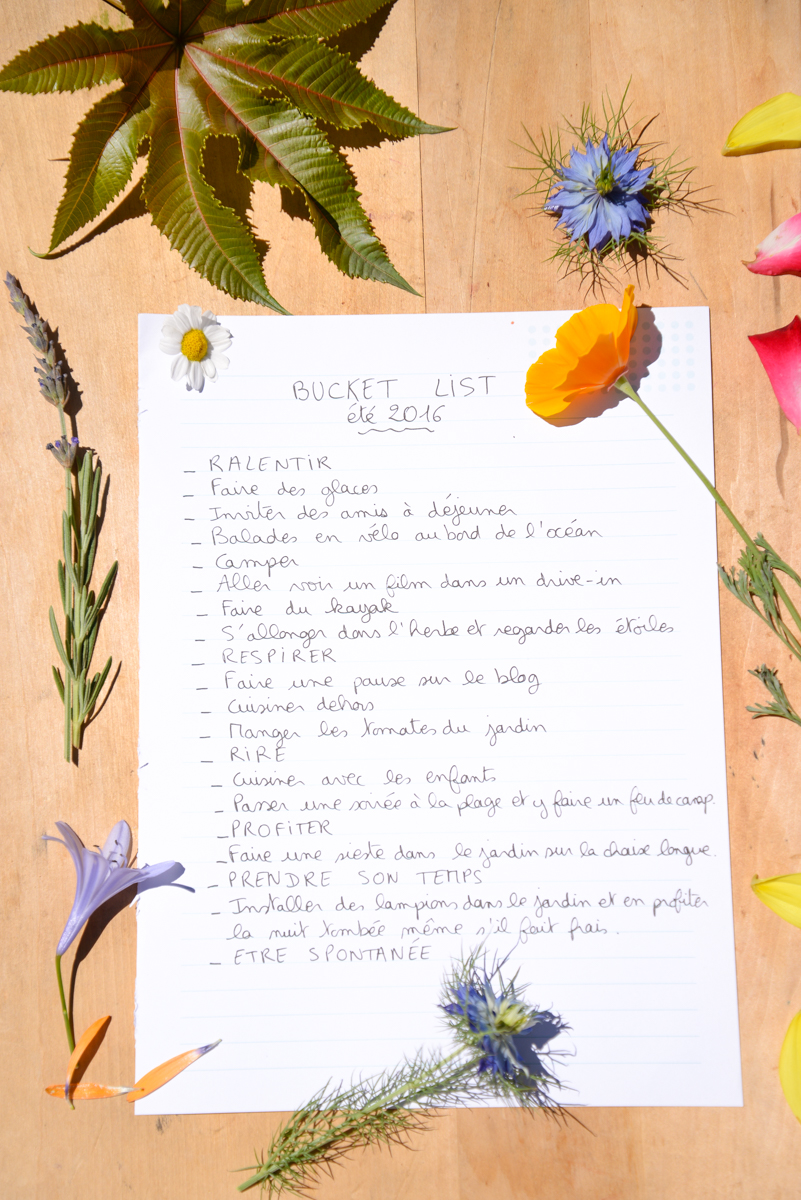 BUCKET LIST
été 2016
_ RALENTIR
_ Faire des glaces
_ Inviter des amis à déjeuner
_ Balades en vélo au bord de l'océan
_ Camper
_ Aller voir un film dans un drive-in
_ Faire du kayak
_ S'allonger dans l'herbe et regarder les étoiles
_ RESPIRER
_ Faire une pause sur le blog
_ Cuisiner dehors
_ Manger les tomates du jardin
_ RIRE
_ Cuisiner avec les enfants
_ Passer une soirée à la plage et y faire un feu de camp.
_ PROFITER
_ Faire une sieste dans le jardin sur la chaise longue.
_ PRENDRE SON TEMPS
_ Installer des lampions dans le jardin et en profiter
la nuit tombée même s'il fait frais.
_ ETRE SPONTANÉE